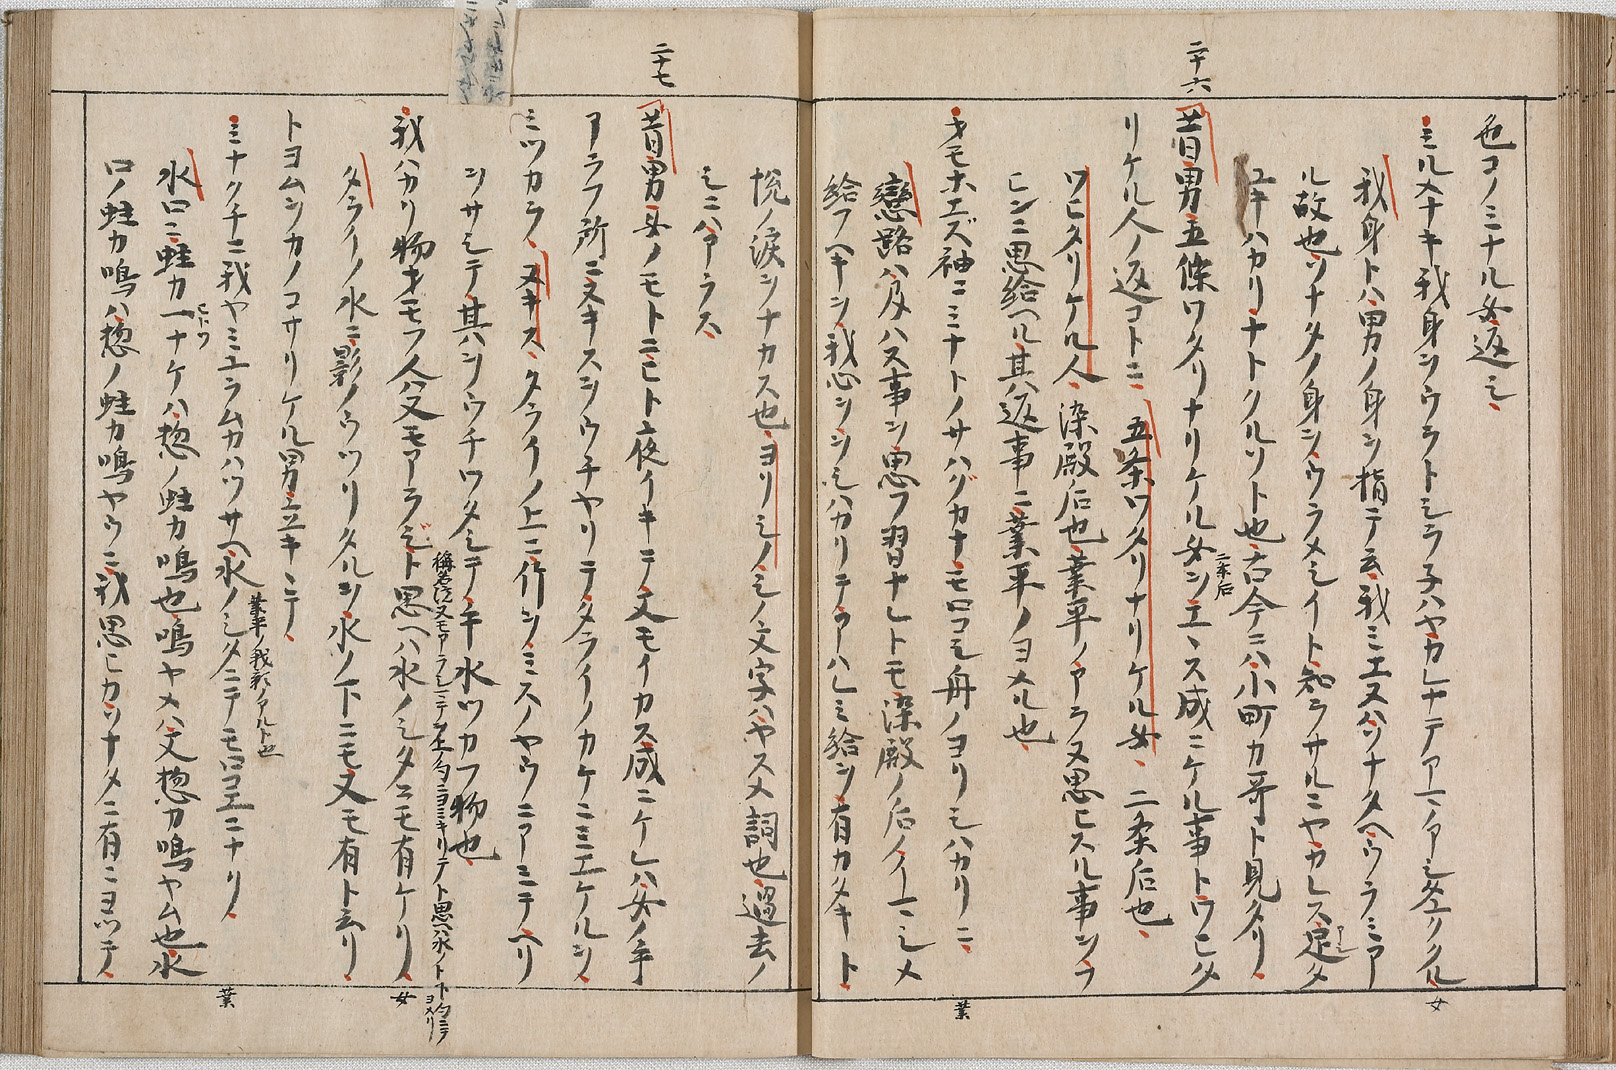 色コノミナル女返シ
ミルメナキ我身ヲウラトシラネハヤカレナテアマノアシタユクル 女
我身トハ男ノ身ヲ指テ云我ミエヌハソナタヘウラミア
ル故也ソナタノ身ヲウラメシイト知ラサルニヤカレス足タ
ユキハカリナトクルソト也古今ニハ小町カ哥ト見タリ
二十六
昔男五條ワタリナリケル女ヲエヽス成ニケル事トワヒタ
二条后
リケル人ノ返コトニ 五条ワタリナリケル女 二条后也
ワヒタリケル人 染殿后也業平ノアラヌ思ヒスル事ヲフ
ヒンニ思給ヘル其ハ返事ニ業平ノヨメル也
オモホエズ袖ニミナトノサハグカナモロコシ舟ノヨリシハカリニ 業
戀路ハ及ハス事ヲ思フ習ナレトモ染殿ノ后ノイマシメ
給フヘキヲ我心ヲヲシハカリテアハレミ給ヲ有カタキト
悦ノ涙ヲナカス也ヨリシノシノ文字ハヤスメ詞也過去ノ
シニハアラス
二十七
昔男女ノモトニヒト夜イキテ又モイカス成ニケレハ女ノ手
アラフ所ニヌキスヲウチヤリテタライノカケニミエケルヲ
ミツカラ ヌキス タライノ上ニ竹ヲミスノヤウニアミテヘリ
ヲサシテ其ハシヲウチワタシテ手水ツカフ物也
我ハカリ物オモフ人ハ又モアラジト思ヘハ水ノシタニモ有ケリ 女
タライノ水ニ影ノウツリタルヲ水ノ下ニモ又モ有ト云リ
トヨムヲカノコサリケル男立キヽテ
業平ノ我影ノアルト也
ミナクチニ我ヤミユラムカハツサヘ水ノシタニテモロコエニナリ 業
水口ニ蛙カ一ナケハ惣ノ蛙カ鳴也鳴ヤメハ又惣カ鳴ヤム也水
口ノ蛙カ鳴ハ惣ノ蛙カ鳴ヤウニ我思ヒカソナタニ有ニヨツテ